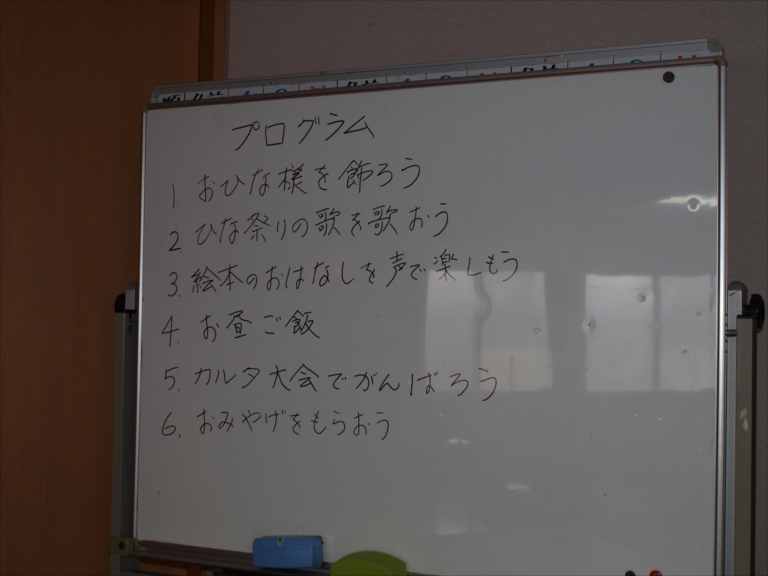 プログラム
1. おひな様を飾ろう
2 ひな祭りの歌を歌おう
3. 絵本のおはなしを声で楽しもう
4. お昼ご飯
5. カルタ大会でがんばろう
6. おみやげをもらおう